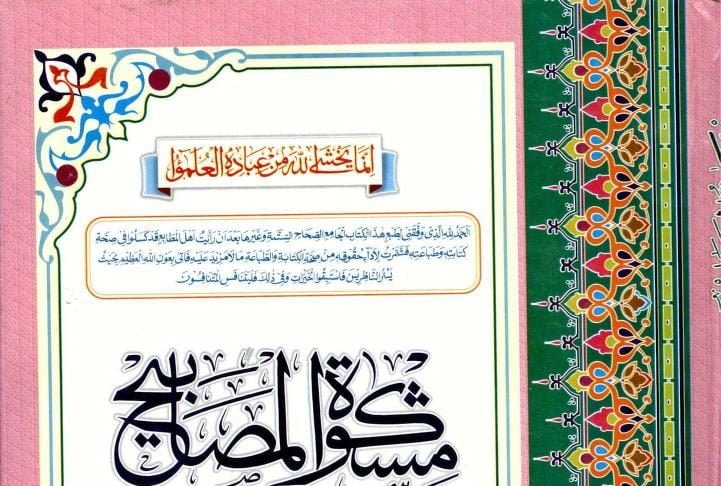 انما يخشى الله من عباده العلمؤا
الحمد لله الذى وفقنى لطبع هذا الكتاب الجامع الصحاح الستة وغيرها بعد ان رأيت اهل المطابع قد كسلوا فى صحة
كتابته وطباعته فشمرت لاداء حقوقه من صحة الكتابة والطباعة ما لا مزيد عليه فاتى بعون الله العظيم بحيث
يسر الناظرين فاستبقوا الخيرات وفى ذلك فليتنافس المتنافسون
مشكوة المصابيح